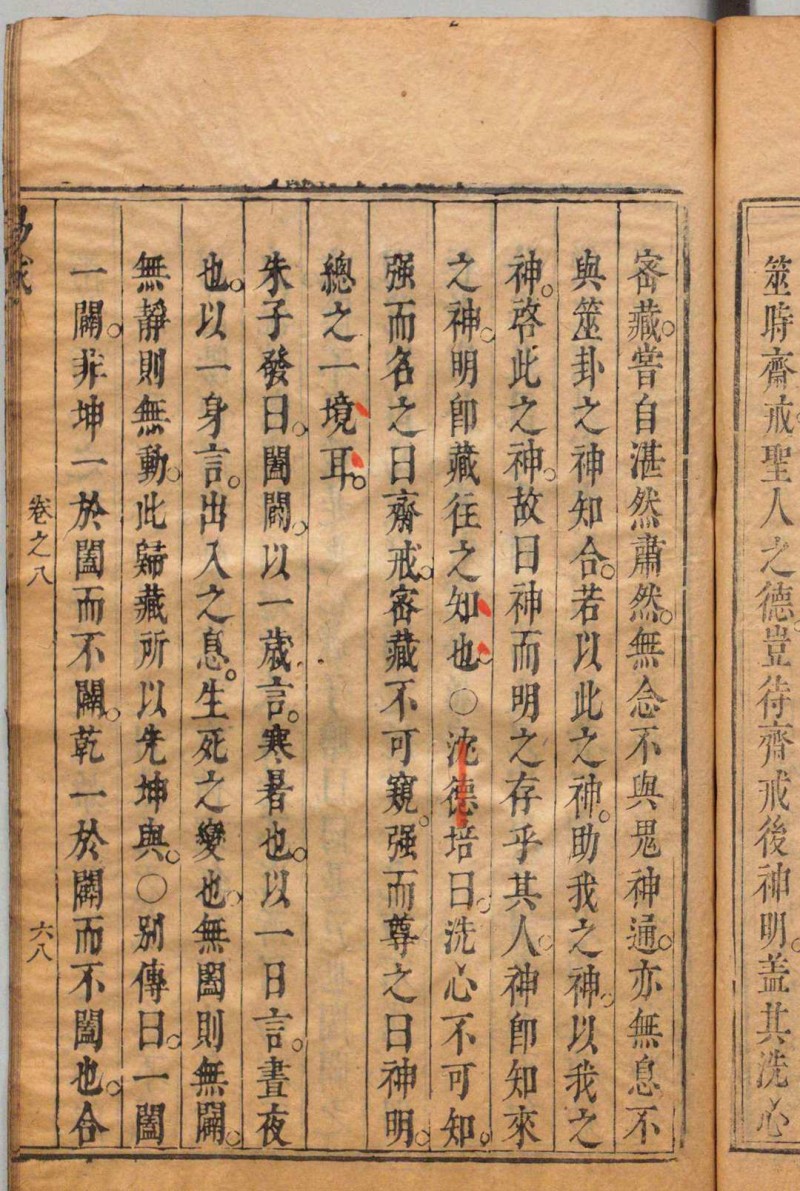 筮時齋戒聖人之德豈待齊戒後神明蓋其洗心
宻藏。嘗自湛然肅然。無念不與鬼神通。亦無息不
與筮卦之神知合。若以此之神。助我之神。以我之
神。啓此之神。故曰神而明之存乎其人。神卽知來
之神。明卽藏往之知也。○沈德培曰。洗心不可知。
强而名之曰齋戒。宻藏不可窺。强而尊之曰神明。
總之一境耳。
朱子發曰。闔闢。以一歲言。寒暑也。以一日言。晝夜
也。以一身言。出入之息。生死之變也。無闔則無闢。
無靜則無動。此歸藏所以先坤與。○別傳曰。一闔
一闢。非坤一於闔而不闢。乾一於闢而不闔也。合
卷之八
六八